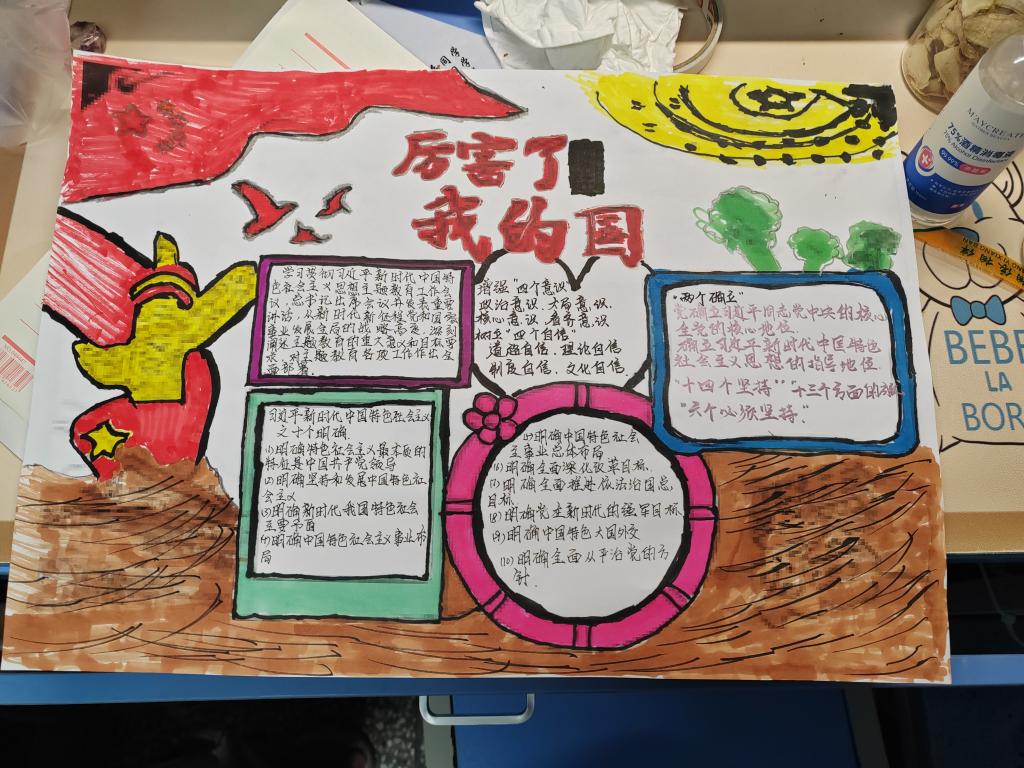 厉害了
我的国
学习贯彻习近平新时代中国特
色社会主义思想主题教育工作会
议,总书记出席会议并发表重要
讲话,从新时代新征程党和国家
事业发展全局的战略高度,深刻
阐述主题教育的重大意义和目标要
求,对主题教育各项工作作出全
面部署.
增强"四个意识"
政治意识、大局意识、
核心意识、看齐意识
树立"四个自信"
道路自信、理论自信
制度自信、文化自信
"两个确立"
党确立习近平同志党中央的核心
全党的核心地位.
确立习近平新时代中国特色
社会主义思想的指导地位.
"十四个坚持""十三个方面的成就
"六个必须坚持"
习近平新时代中国特色社会主义
之十个明确.
(1)明确特色社会主义最本质的
特征是中国共产党领导
(2)明确坚持和发展中国特色社
会主义
(3)明确新时代我国特色社会
主要矛盾
(4)明确中国特色社会主义事业布
局
(5)明确中国特色社会
主义事业总体布局
(6)明确全面深化改革目标.
(7)明确全面推进依法治国总
目标
(8)明确党在新时代的强军目标
(9)明确中国特色大国外交
(10)明确全面从严治党的方
针.
MAYCREATE
75%酒精消毒液
75% Alcohol Disinfectant
BEBE
LA
BOR